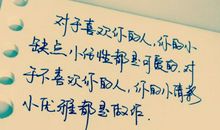 对于喜欢你的人，你的小
缺点小任性都是可爱的.对
于不喜欢你的人，你的小清新
小优雅都是做作.